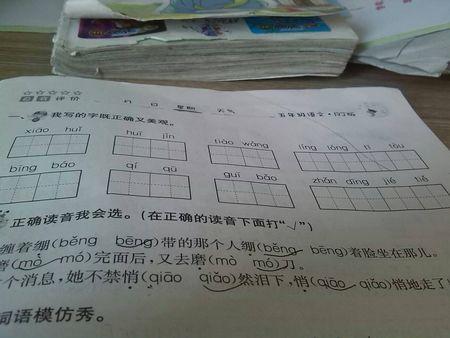 自我评价 月 日 星期 天气 五年级语文·RJ版
一、我写的字既正确又美观。
xiāo huǐ huī jìn tiào wàng líng lóng tī tòu
bīng bào qí qū guī bǎo zhǎn dīng jié tiě
正确读音我会选。(在正确的读音下面打“√”)
缠着绷(běng bēng)带的那个人绷(běng bēng)着脸坐在那儿。
磨(mò mó)完面后，又去磨(mò mó)刀。
个消息，她不禁悄(qiāo qiǎo)然泪下，悄(qiāo qiǎo)悄地走了
词语模仿秀。